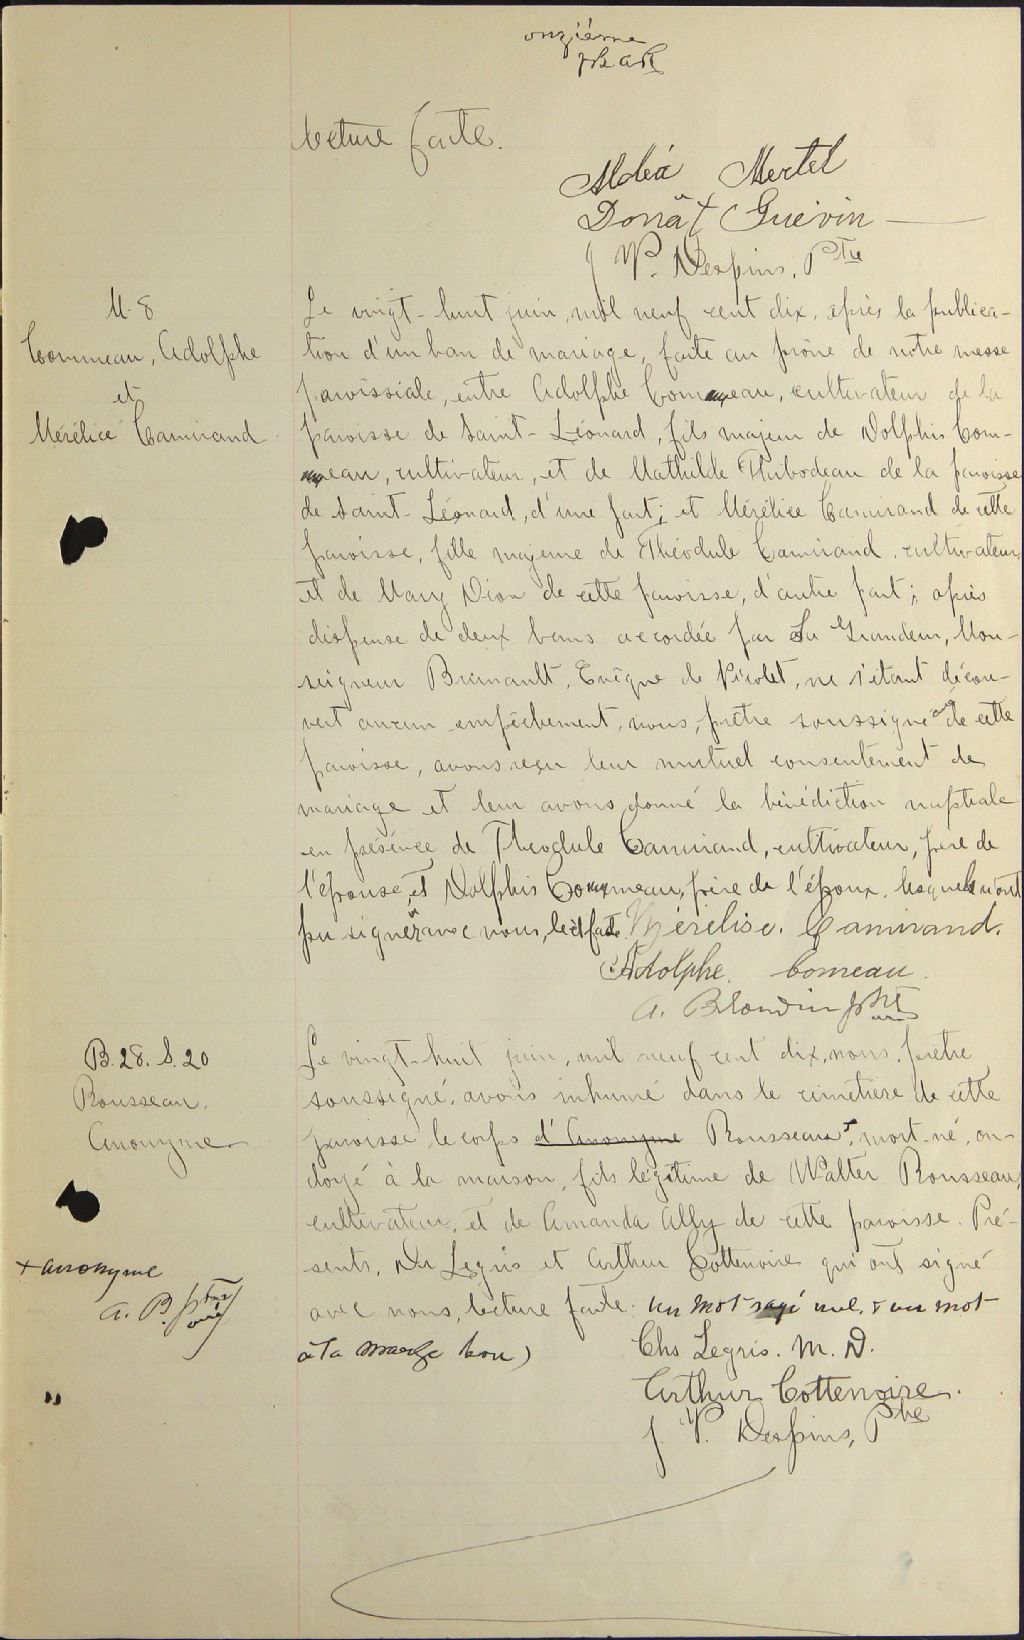 onzième
lecture faite.
Aldéa Mertel
Donat Guévin
J. P. Despins, Ptre
M. 8
Commeau, Adolphe
et
Mérélice Camirand
Le vingt-huit juin, mil neuf cent dix, après la publica-
tion d'un ban de mariage, faite au prône de notre messe
paroissiale, entre Adolphe Commeau, cultivateur de la
paroisse de Saint-Léonard, fils majeur de Dolphis Com-
meau, cultivateur, et de Mathilde Thibodeau de la paroisse
de Saint-Léonard, d'une part; et Mérélice Camirand de cette
paroisse, fille majeure de Théodule Camirand, cultivateur,
et de Mary Dion de cette paroisse, d'autre part; après
dispense de deux bans accordée par Sa Grandeur, Mon-
seigneur Brunault, Evêque de Nicolet, ne s'étant décou-
vert aucun empêchement, nous, prêtre soussigné curé de cette
paroisse, avons reçu leur mutuel consentement de
mariage et leur avons donné la bénédiction nuptiale
en présence de Theodule Camirand, cultivateur, père de
l'épouse, et Dolphis Commeau, père de l'époux, lesquels n'ont
pu signer avec nous, lect faite. Mérélise. Camirand.
Adolphe. Comeau.
A. Blondin ptre
B. 28. S. 20
Rousseau,
Anonyme
Le vingt-huit juin, mil neuf cent dix, nous, prêtre
soussigné, avons inhumé dans le cimetière de cette
paroisse le corps d'Anonyme Rousseau +, mort-né, on-
doyé à la maison, fils légitime de Walter Rousseau,
cultivateur, et de Amanda Ally de cette paroisse. Pré-
sents, Dr Legris et Arthur Cottenoire qui ont signé
avec nous, lecture faite. Un mot rayé nul, & un mot
à la marge bon)
+ anonyme
A. B. ptre
curé
Chs Legris. M. D.
Arthur Cottenoire.
J. P. Despins, Ptre